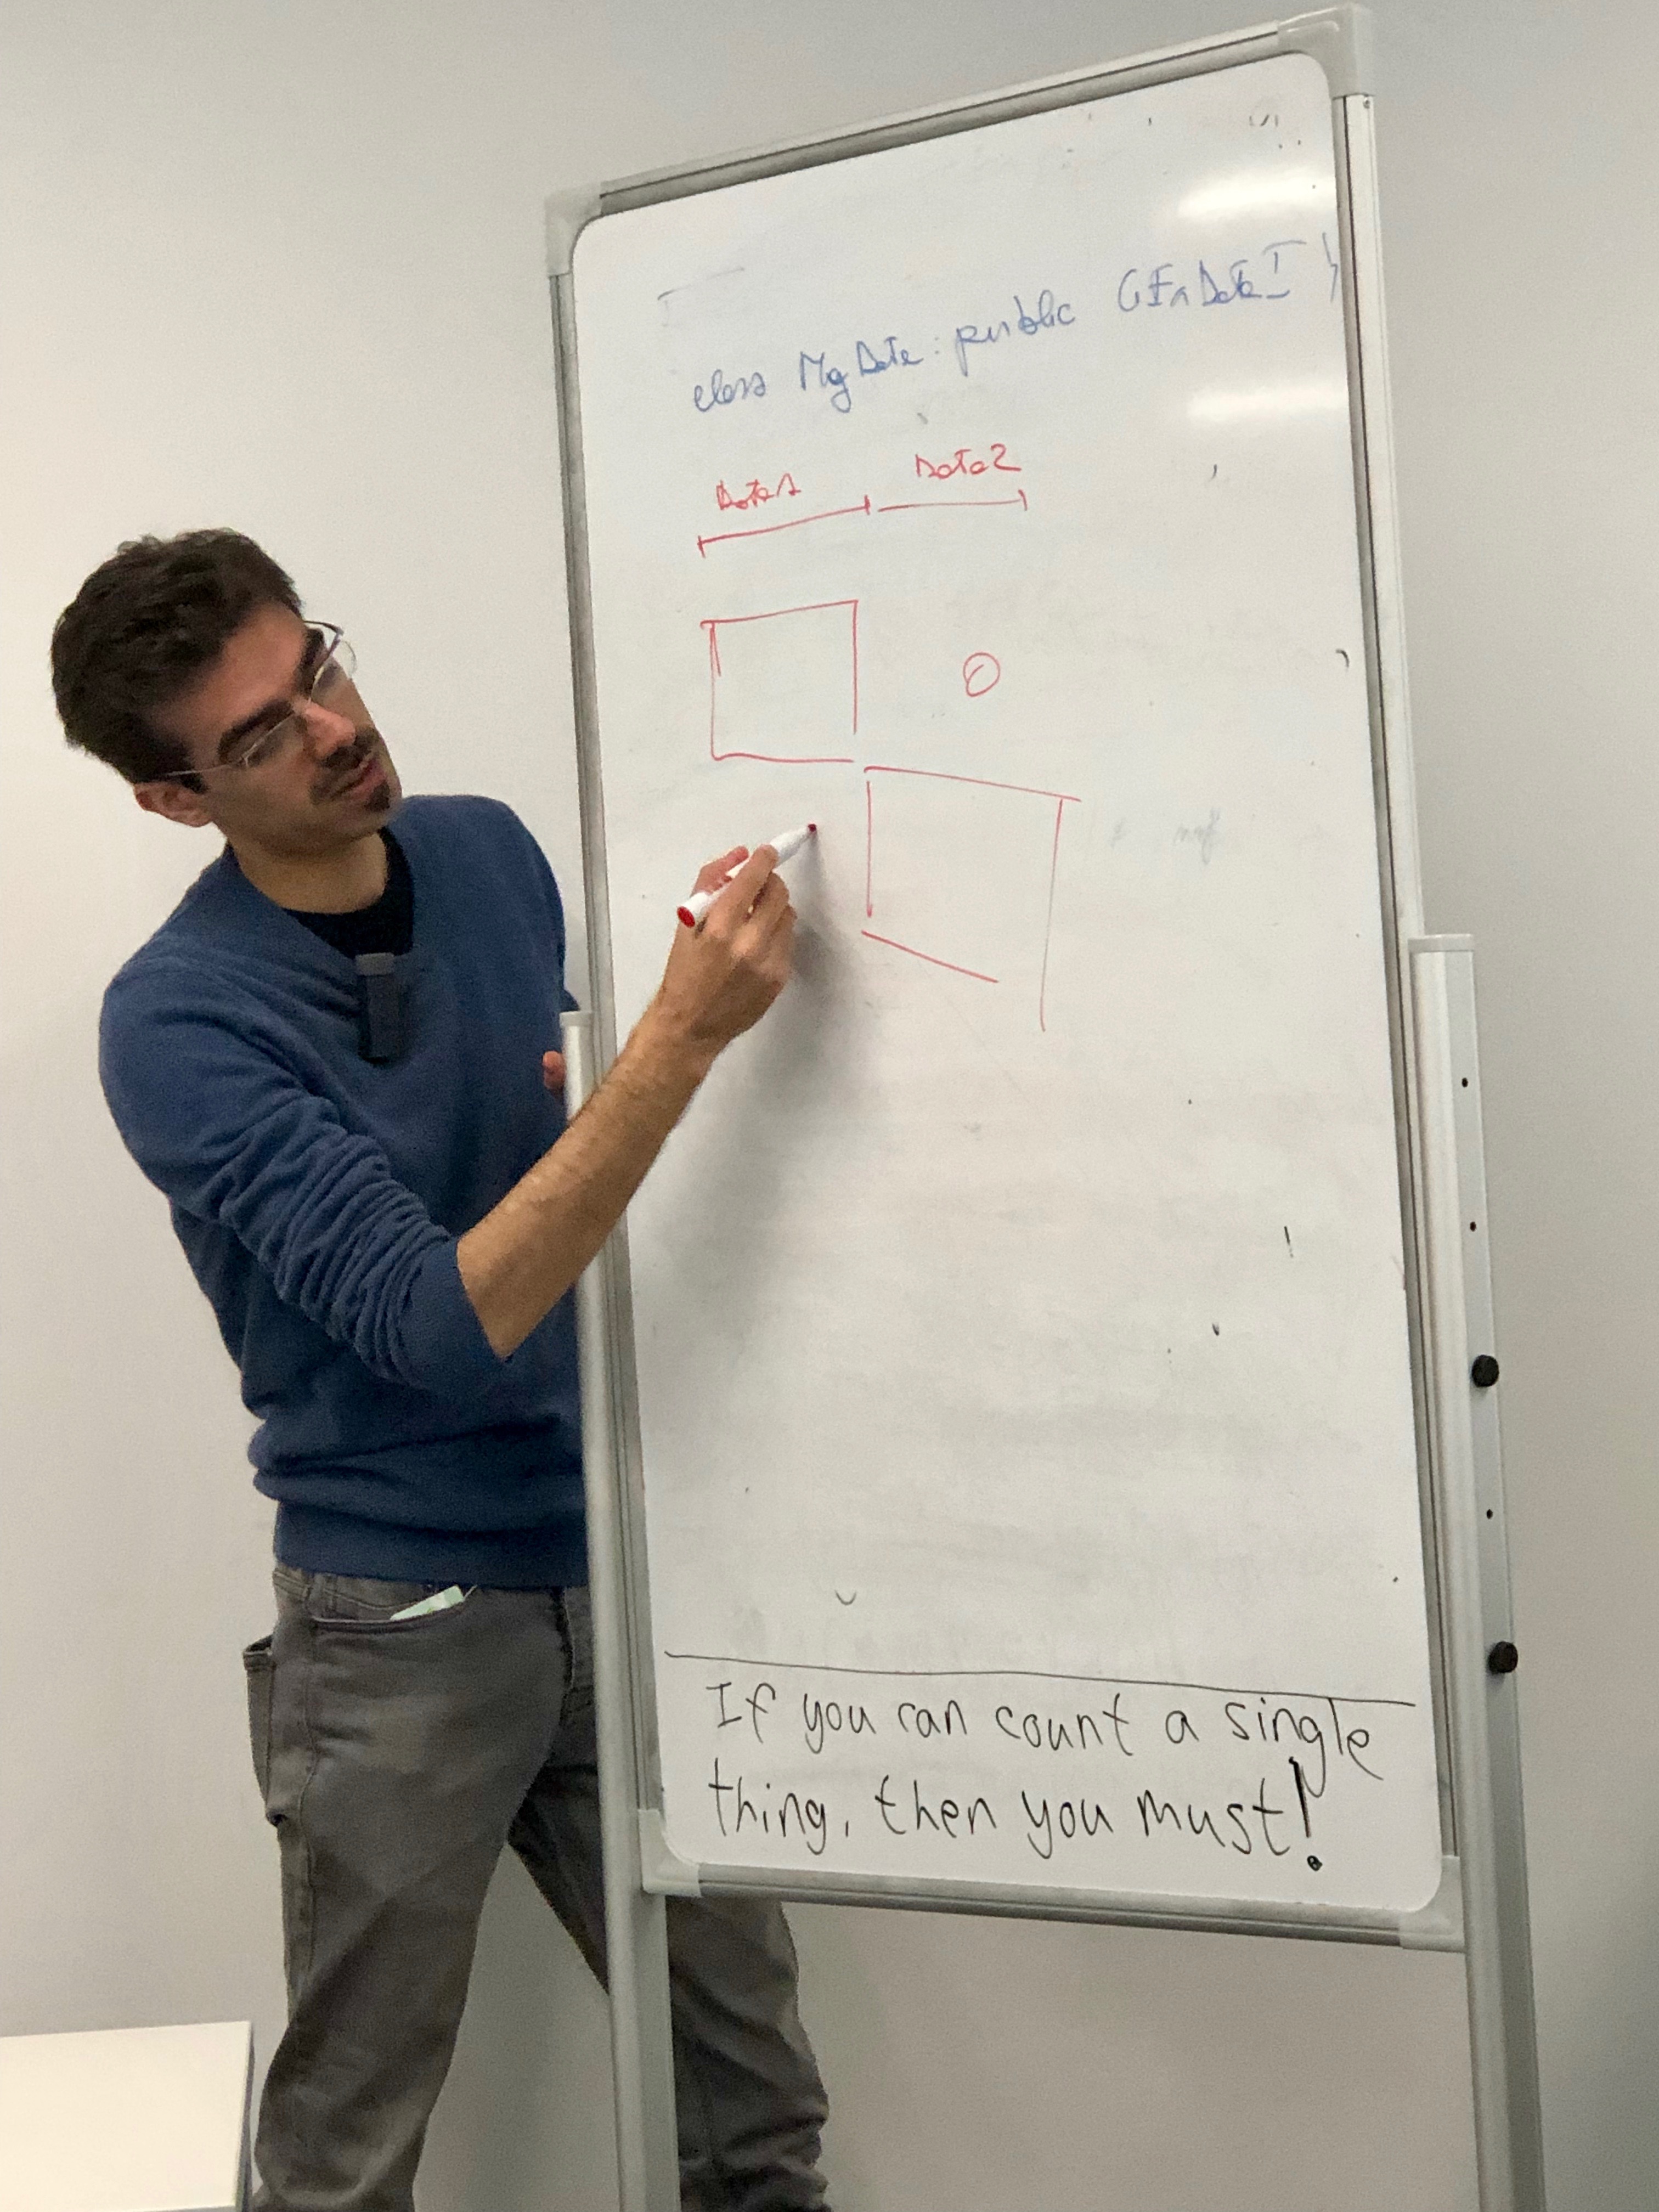 class MyData : public GEnDataI {
Data1 Data2
0
If you can count a single
thing, then you must!